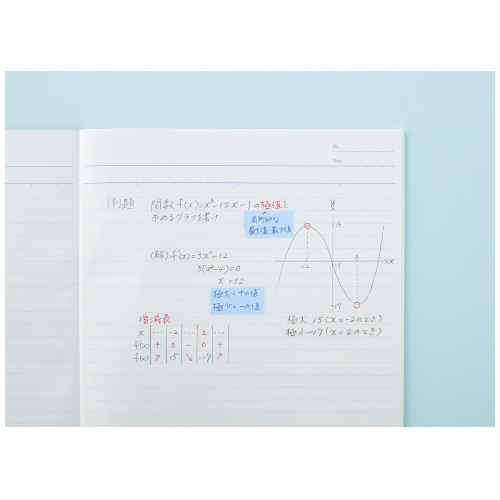 No.
Date
例題 関数 f(x)=x³-12x-1の極値を
求めるグラフを書け
局所的な
最大値、最小値
(解) f'(x)=3x²-12
3(x²-4)=0
x=±2
極大=+の値
極小=-の値
増減表
x … -2 … 2 …
f'(x) + 0 - 0 +
f(x) ↗ 15 ↘ -17 ↗
y
15
-2
2
-1
x
-17
極大 15 (x=-2のとき)
極小-17 (x=2のとき)